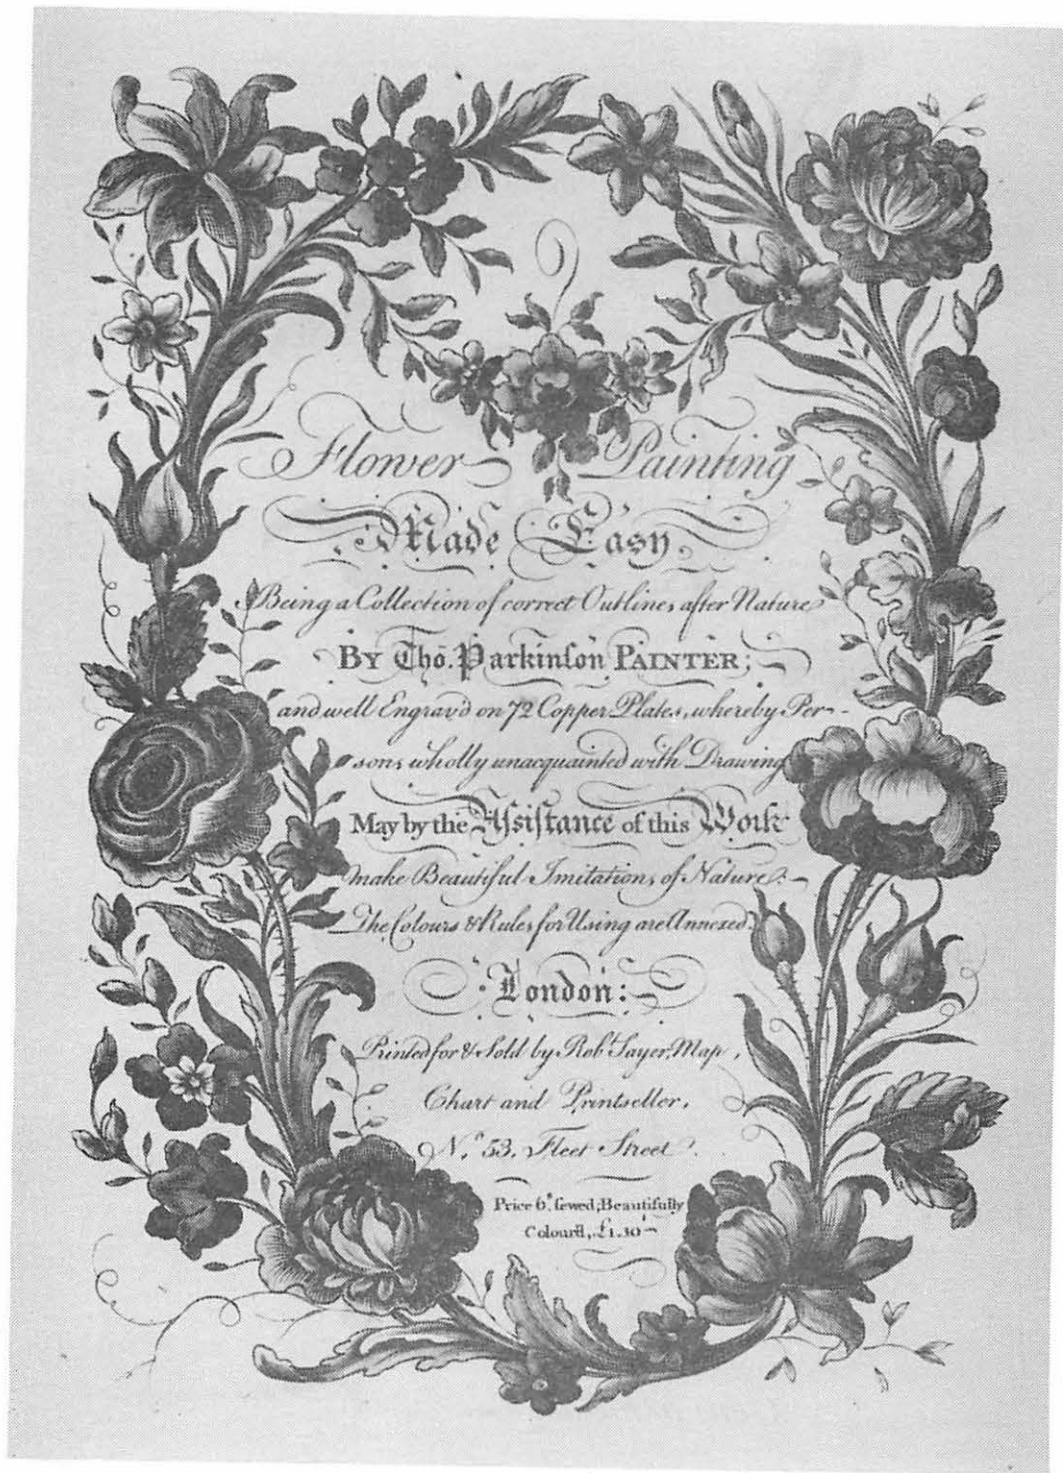 Flower Painting
Made Easy
Being a Collection of correct Outlines after Nature
By Tho. Parkinſon PAINTER;
and well Engrav'd on 72 Copper Plates, whereby Per-
sons wholly unacquainted with Drawing
May by the Aſsiſtance of this Work
make Beautiful Imitations of Nature.
The Colours & Rules for Using are Annexed.
London:
Printed for & Sold by Robt. Sayer, Map,
Chart and Printseller,
No. 53, Fleet Street.
Price 6s. ſewed; Beautifully
Colour'd, £1.10